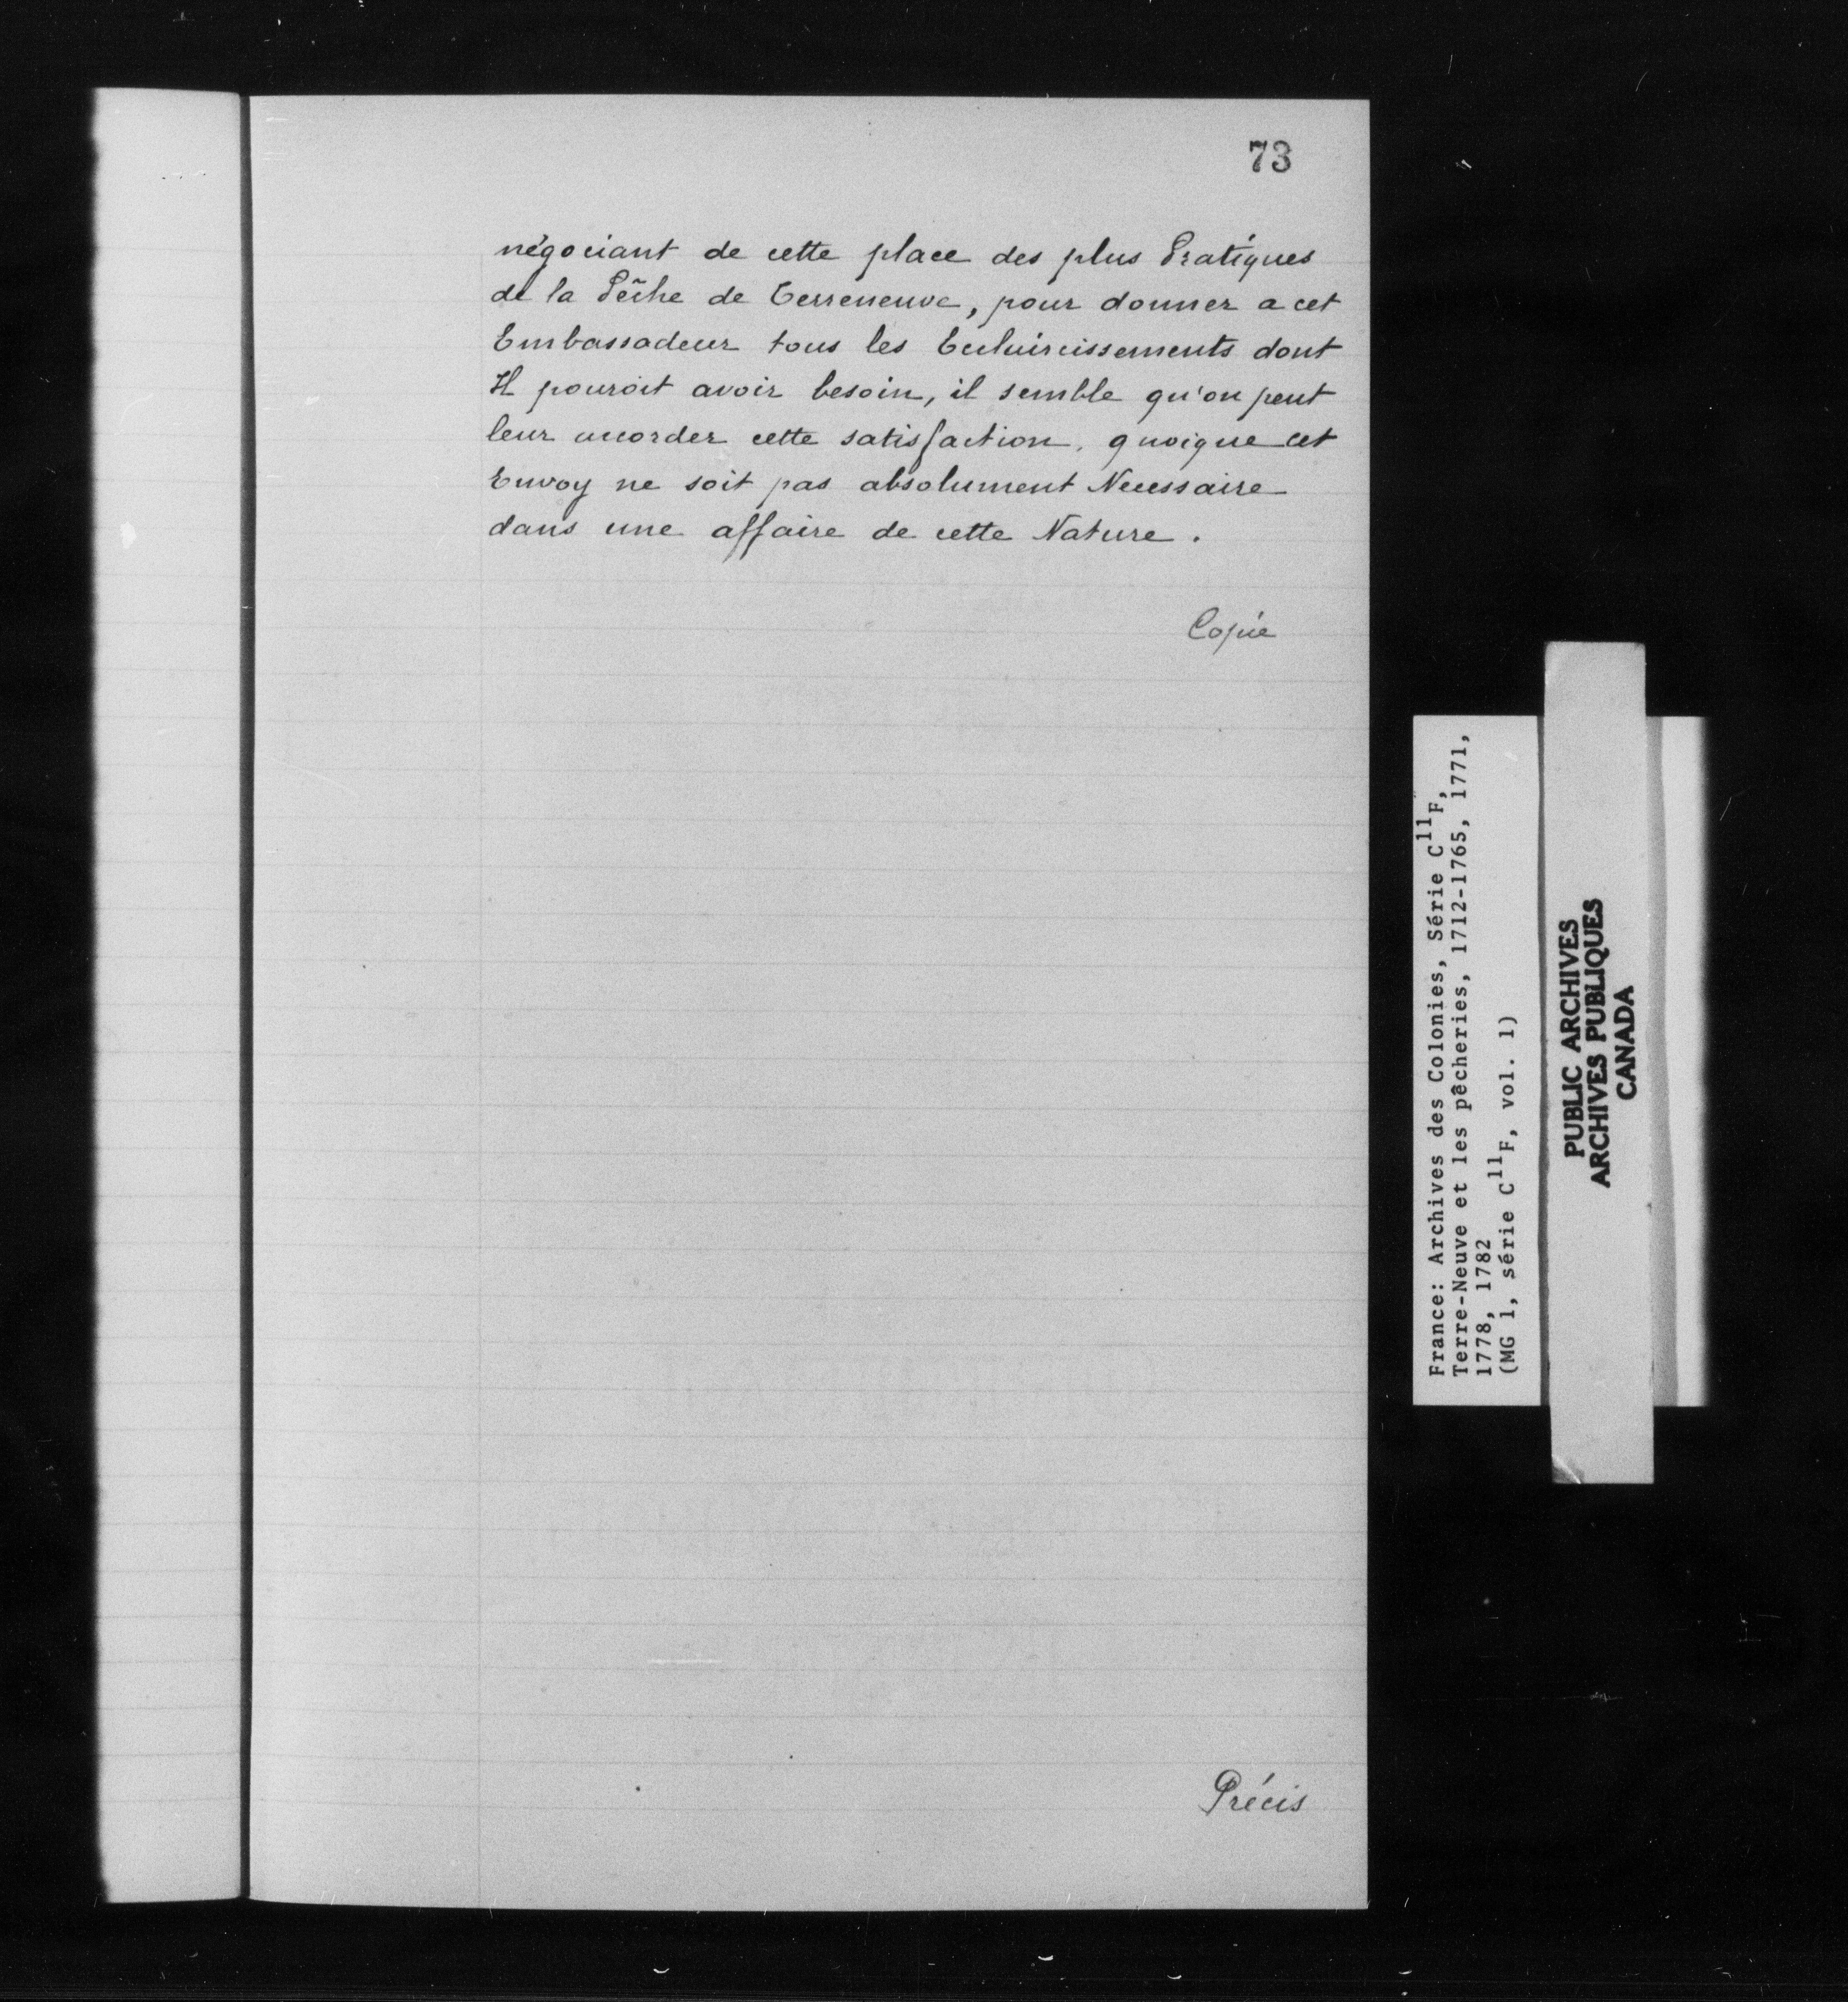 73
négociant de cette place des plus Pratiques
de la Pêche de Terreneuve, pour donner a cet
Embassadeur tous les Ecclaircissements dont
Il pouroit avoir besoin, il semble qu'on peut
leur accorder cette satisfaction, quoique cet
Envoy ne soit pas absolument Necessaire
dans une affaire de cette Nature.
Copie
Précis
France: Archives des Colonies, Série C11F,
Terre-Neuve et les pêcheries, 1712-1765, 1771,
1778, 1782
(MG 1, série C11F, vol. 1)
PUBLIC ARCHIVES
ARCHIVES PUBLIQUES
CANADA